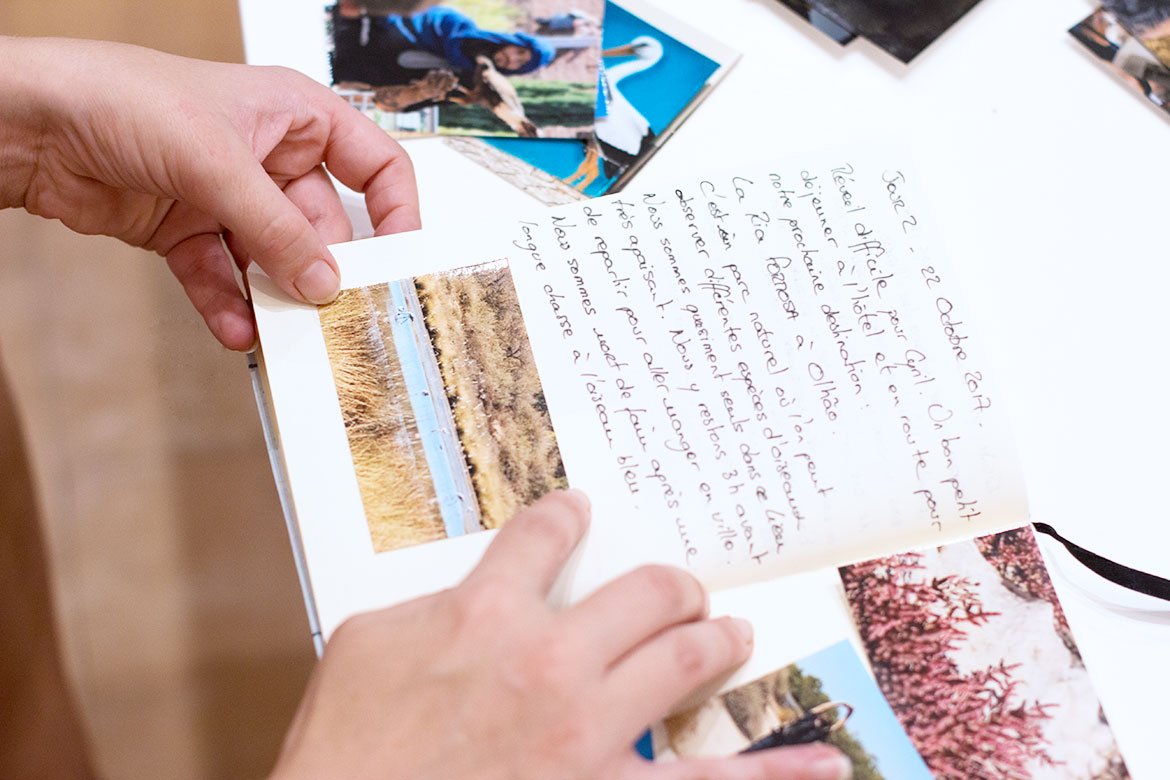 Jour 2 - 22 Octobre 2017.
Réveil difficile pour Cyril. On bon petit
déjeuner à l'hôtel et en route pour
notre prochaine destination :
La Ria FORMOSA à Olhão.
c'est un parc naturel où l'on peut
observer différentes espèces d'oiseaux.
Nous sommes quasiment seuls dans ce lieu
très apaisant. Nous y restons 3h avant
de repartir pour aller manger en ville.
Nous sommes mort de faim après une
longue chasse à l'oiseau bleu.